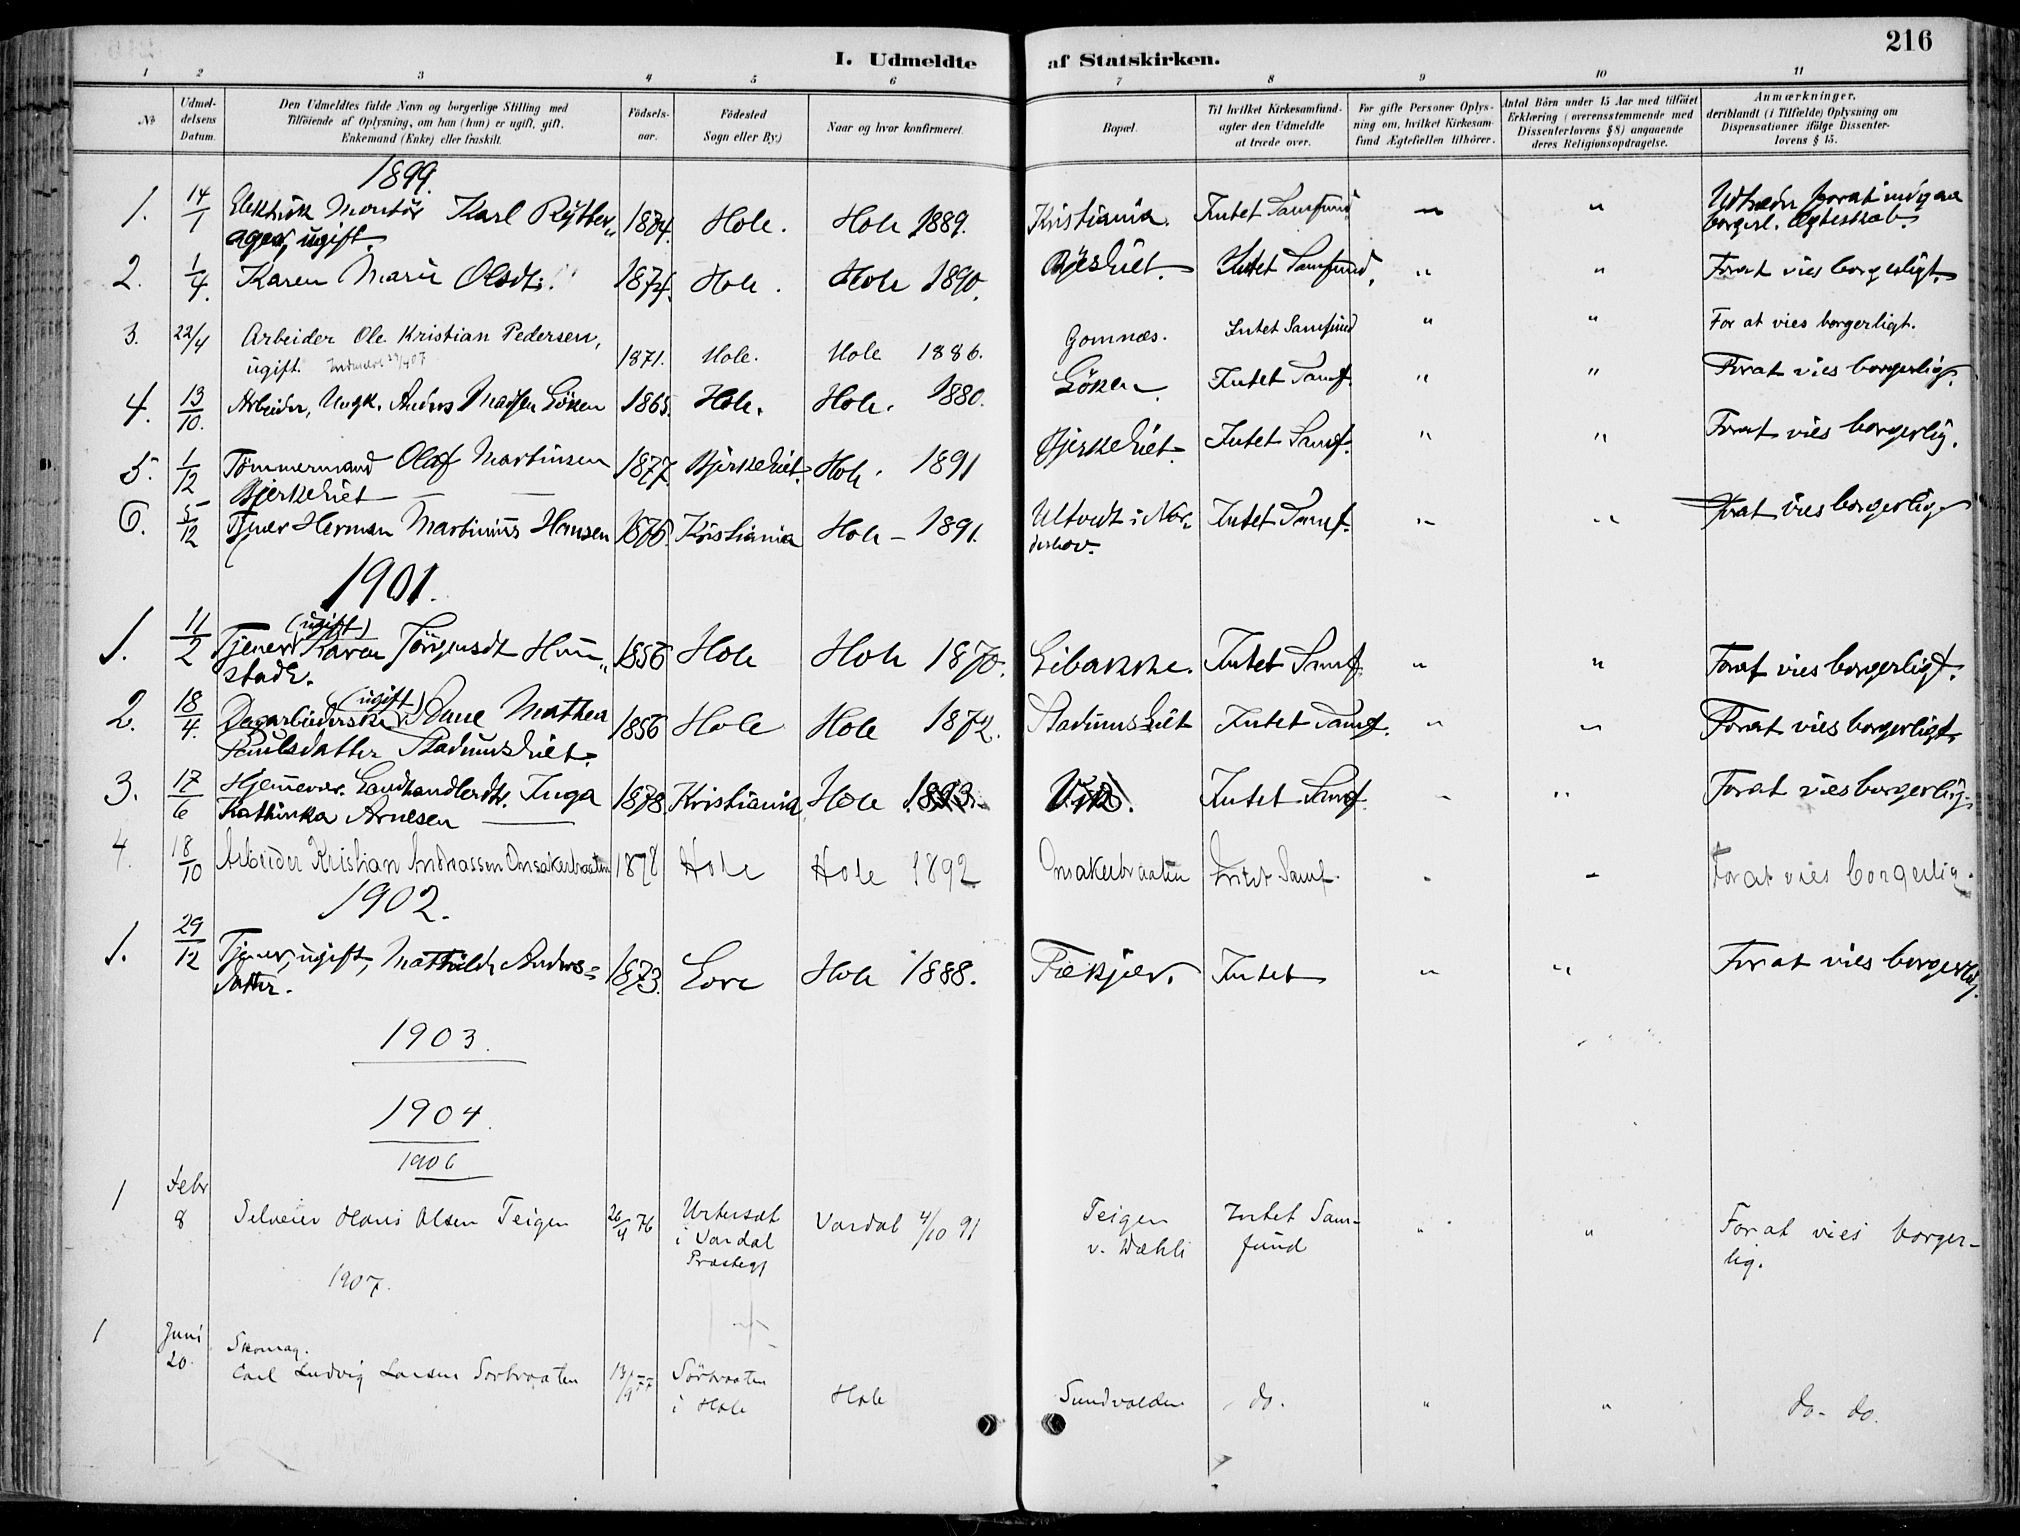 216
I. Udmeldte af Statskirken.
1 2 3 4 5 6 7 8 9 10 11
No
Udmel-
delsens
Datum.
Den Udmeldtes fulde Navn og borgerlige Stilling med
Tilföiende af Oplysning, om han (hun) er ugift, gift,
Enkemand (Enke) eller fraskilt.
Födsels-
aar.
Födested
Sogn eller By.)
Naar og hvor konfirmeret.
Bopæl.
Til hvilket Kirkesamfund-
agter den Udmeldte
at træde over.
For gifte Personer Oplys-
ning om, hvilket Kirkesam-
fund Ægtefællen tilhörer.
Antal Börn under 15 Aar med tilföiet
Erklæring (overensstemmende med
Dissenterlovens § 8) angaaende
deres Religionsopdragelse.
Anmærkninger,
deriblandt (i Tilfælde) Oplysning om
Dispensationer ifölge Dissenter-
lovens § 15.
1899.
1. 14/1 Elektrisk Montör Karl Rytter- 1874. Hole. Hole 1889. Kristiania. Intet Samfund " " Udtræder for at indgaa
ager, ugift. borgerl. Ægteskab.
2. 1/4. Karen Marie Olsdt. 1874. Hole. Hole 1890. Intet Samfund. " " For at vies borgerligt.
3. 22/4 Arbeider Ole Kristian Pedersen, 1871. Hole. Hole 1886. Gomnæs. Intet Samfund " " For at vies borgerligt.
ugift.
4. 13/10. Arbeider, Ungk. Anders Madsen Löken 1865. Hole. Hole. 1880. Löken. Intet Samf. " " For at vies borgerlig.
5. 1/12 Tömmermand Olaf Martinsen 1877. Bjerkehiet. Hole. 1891 Bjerkehiet. Intet Samf. " " For at vies borgerlig.
Bjerkehiet
6. 5/12 Tjener Herman Martinius Hansen 1876. Kristiania Hole - 1891. Ultvedt i Nor- Intet Samf. " " For at vies borgerlig
derhov.
1901.
1. 11/2 Tjener (ugift) Karen Jörgensdt 1856 Hole Hole 1870. Libakke. Intet Samf. " " For at vies borgerligt.
2. 18/4. Dagarbeiderske (ugift) Mathea 1856 Hole Hole 1872. Stadumshiet Intet Samf. " " For at vies borgerligt.
Paulsdatter Stadumshiet.
3. 17/6 Hjemmevær. Landhandlerdtr. Inga 1878. Kristiania Hole 1893. Vik. Intet Samf. " " For at vies borgerlig.
Kathinka Arnesen
4. 18/10 Arbeider Kristian Andreassen Onsakerbraaten 1878 Hole Hole 1892 Onsakerbraaten Intet Samf. - - For at vies borgerlig.
1902.
1. 29/12 Tjener, ugift, Mathilde Anders= 1873. Hole 1888. Fækjær. Intet " " For at vies borgerlig.
datter.
1903.
1904.
1906
1 Febr 8 Selveier Hans Olsen Teigen 26/4 76 i Vardal Præstegj Vardal 4/10 91 Teigen v. Wæhli Intet Sam-
fund " " For at vies borger-
lig.
1907.
1 Juni 20. Skomag.
Carl Ludvig Larsen Sörbraaten 13/9 77 Sörbraaten i Hole Hole Sundvolden do. " " do. do.